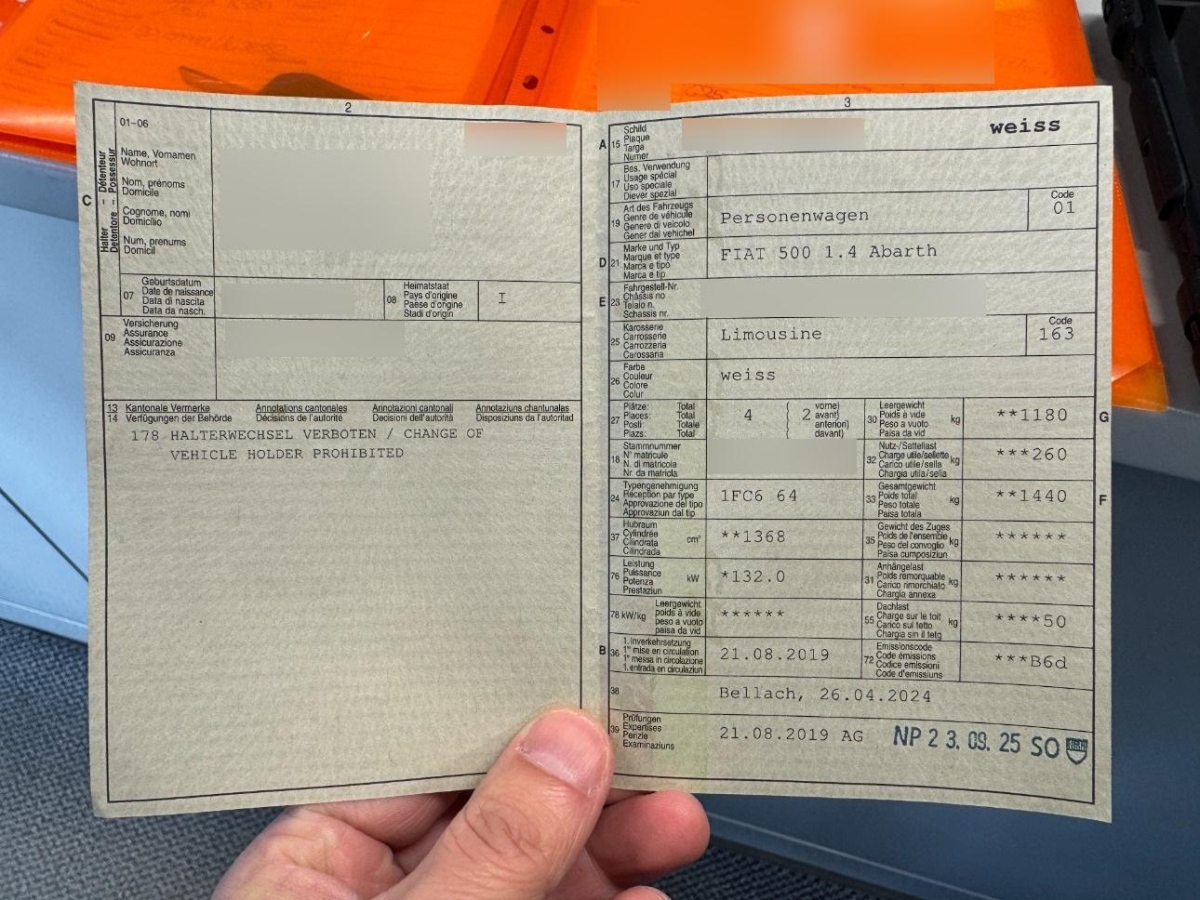 2
01-06
C
Halter – Détenteur
Detentore – Possessur
Name, Vornamen
Wohnort
Nom, prénoms
Domicile
Cognome, nomi
Domicilio
Num, prenums
Domicil
07
Geburtsdatum
Date de naissance
Data di nascita
Data da nasch.
08
Heimatstaat
Pays d'origine
Paese d'origine
Stadi d'origin
I
09
Versicherung
Assurance
Assicurazione
Assicuranza
13 Kantonale Vermerke Annotations cantonales Annotazioni cantonali Annotaziuns chantunales
14 Verfügungen der Behörde Décisions de l'autorité Decisioni dell'autorità Disposiziuns da l'autoritad
178 HALTERWECHSEL VERBOTEN / CHANGE OF
VEHICLE HOLDER PROHIBITED
3
A 15
Schild
Plaque
Targa
Numer
weiss
17
Bes. Verwendung
Usage spécial
Uso speciale
Diever spezial
19
Art des Fahrzeugs
Genre de véhicule
Genere di veicolo
Gener dal vehichel
Personenwagen
Code
01
D 21
Marke und Typ
Marque et type
Marca e tipo
Marca e tip
FIAT 500 1.4 Abarth
E 23
Fahrgestell-Nr.
Châssis no
Telaio n.
Schassis nr.
25
Karosserie
Carrosserie
Carrozzeria
Carossaria
Limousine
Code
163
26
Farbe
Couleur
Colore
Colur
weiss
27
Plätze: Total
Places: Total
Posti: Totale
Plazs: Total
4
2
vorne)
avant)
anteriori)
davant)
30
Leergewicht
Poids à vide
Peso a vuoto
Paisa da vid
kg
**1180
G
18
Stammnummer
N° matricule
N. di matricola
Nr da matricla
32
Nutz-/Sattellast
Charge utile/sellette
Carico utile/sella
Chargia utila/sella
kg
***260
24
Typengenehmigung
Réception par type
Approvazione del tipo
Approvaziun dal tip
1FC6 64
33
Gesamtgewicht
Poids total
Peso totale
Paisa totala
kg
**1440
F
37
Hubraum
Cylindrée
Cilindrata
Cilindrada
cm³
**1368
35
Gewicht des Zuges
Poids de l'ensemble
Peso del convoglio
Paisa cumposiziun
kg
******
76
Leistung
Puissance
Potenza
Prestaziun
kW
*132.0
31
Anhängelast
Poids remorquable
Carico rimorchiato
Chargia annexa
kg
******
78 kW/kg
Leergewicht
poids à vide
peso a vuoto
paisa da vid
******
55
Dachlast
Charge sur le toit
Carico sul tetto
Chargia sin il tetg
kg
****50
B 36
1. Inverkehrsetzung
1re mise en circulation
1a messa in circolazione
1. entrada en circulaziun
21.08.2019
72
Emissionscode
Code émissions
Codice emissioni
Code d'emissiuns
***B6d
38
Bellach, 26.04.2024
39
Prüfungen
Expertises
Perizie
Examinaziuns
21.08.2019 AG
NP 23.09.25 SO